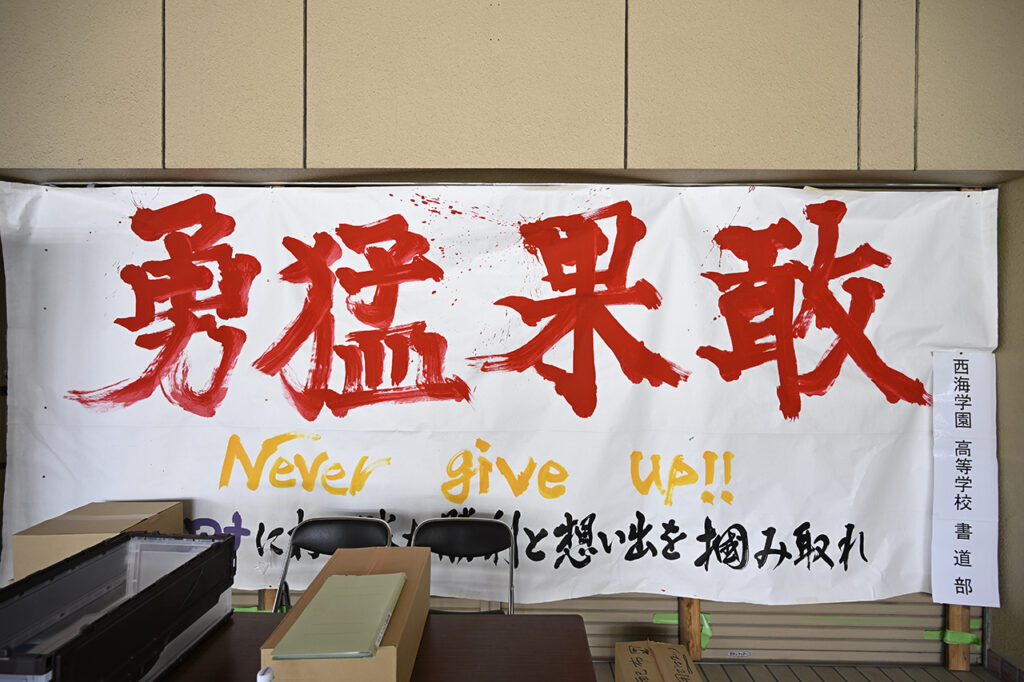 勇猛果敢
Never give up!!
に
と想い出を掴み取れ
西海学園 高等学校 書道部